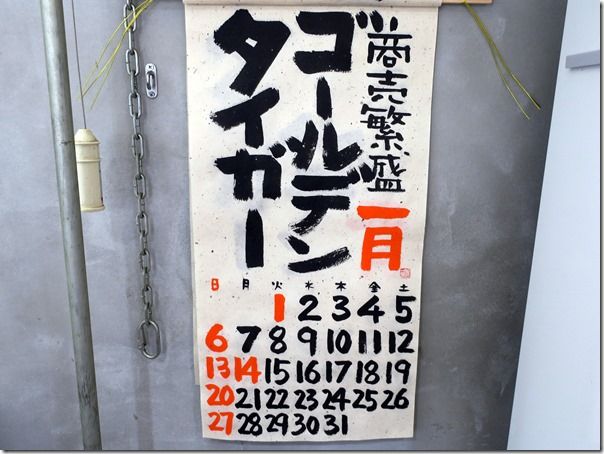 商売繁盛
ゴールデン
タイガー
一月
日 月 火 水 木 金 土
1 2 3 4 5
6 7 8 9 10 11 12
13 14 15 16 17 18 19
20 21 22 23 24 25 26
27 28 29 30 31